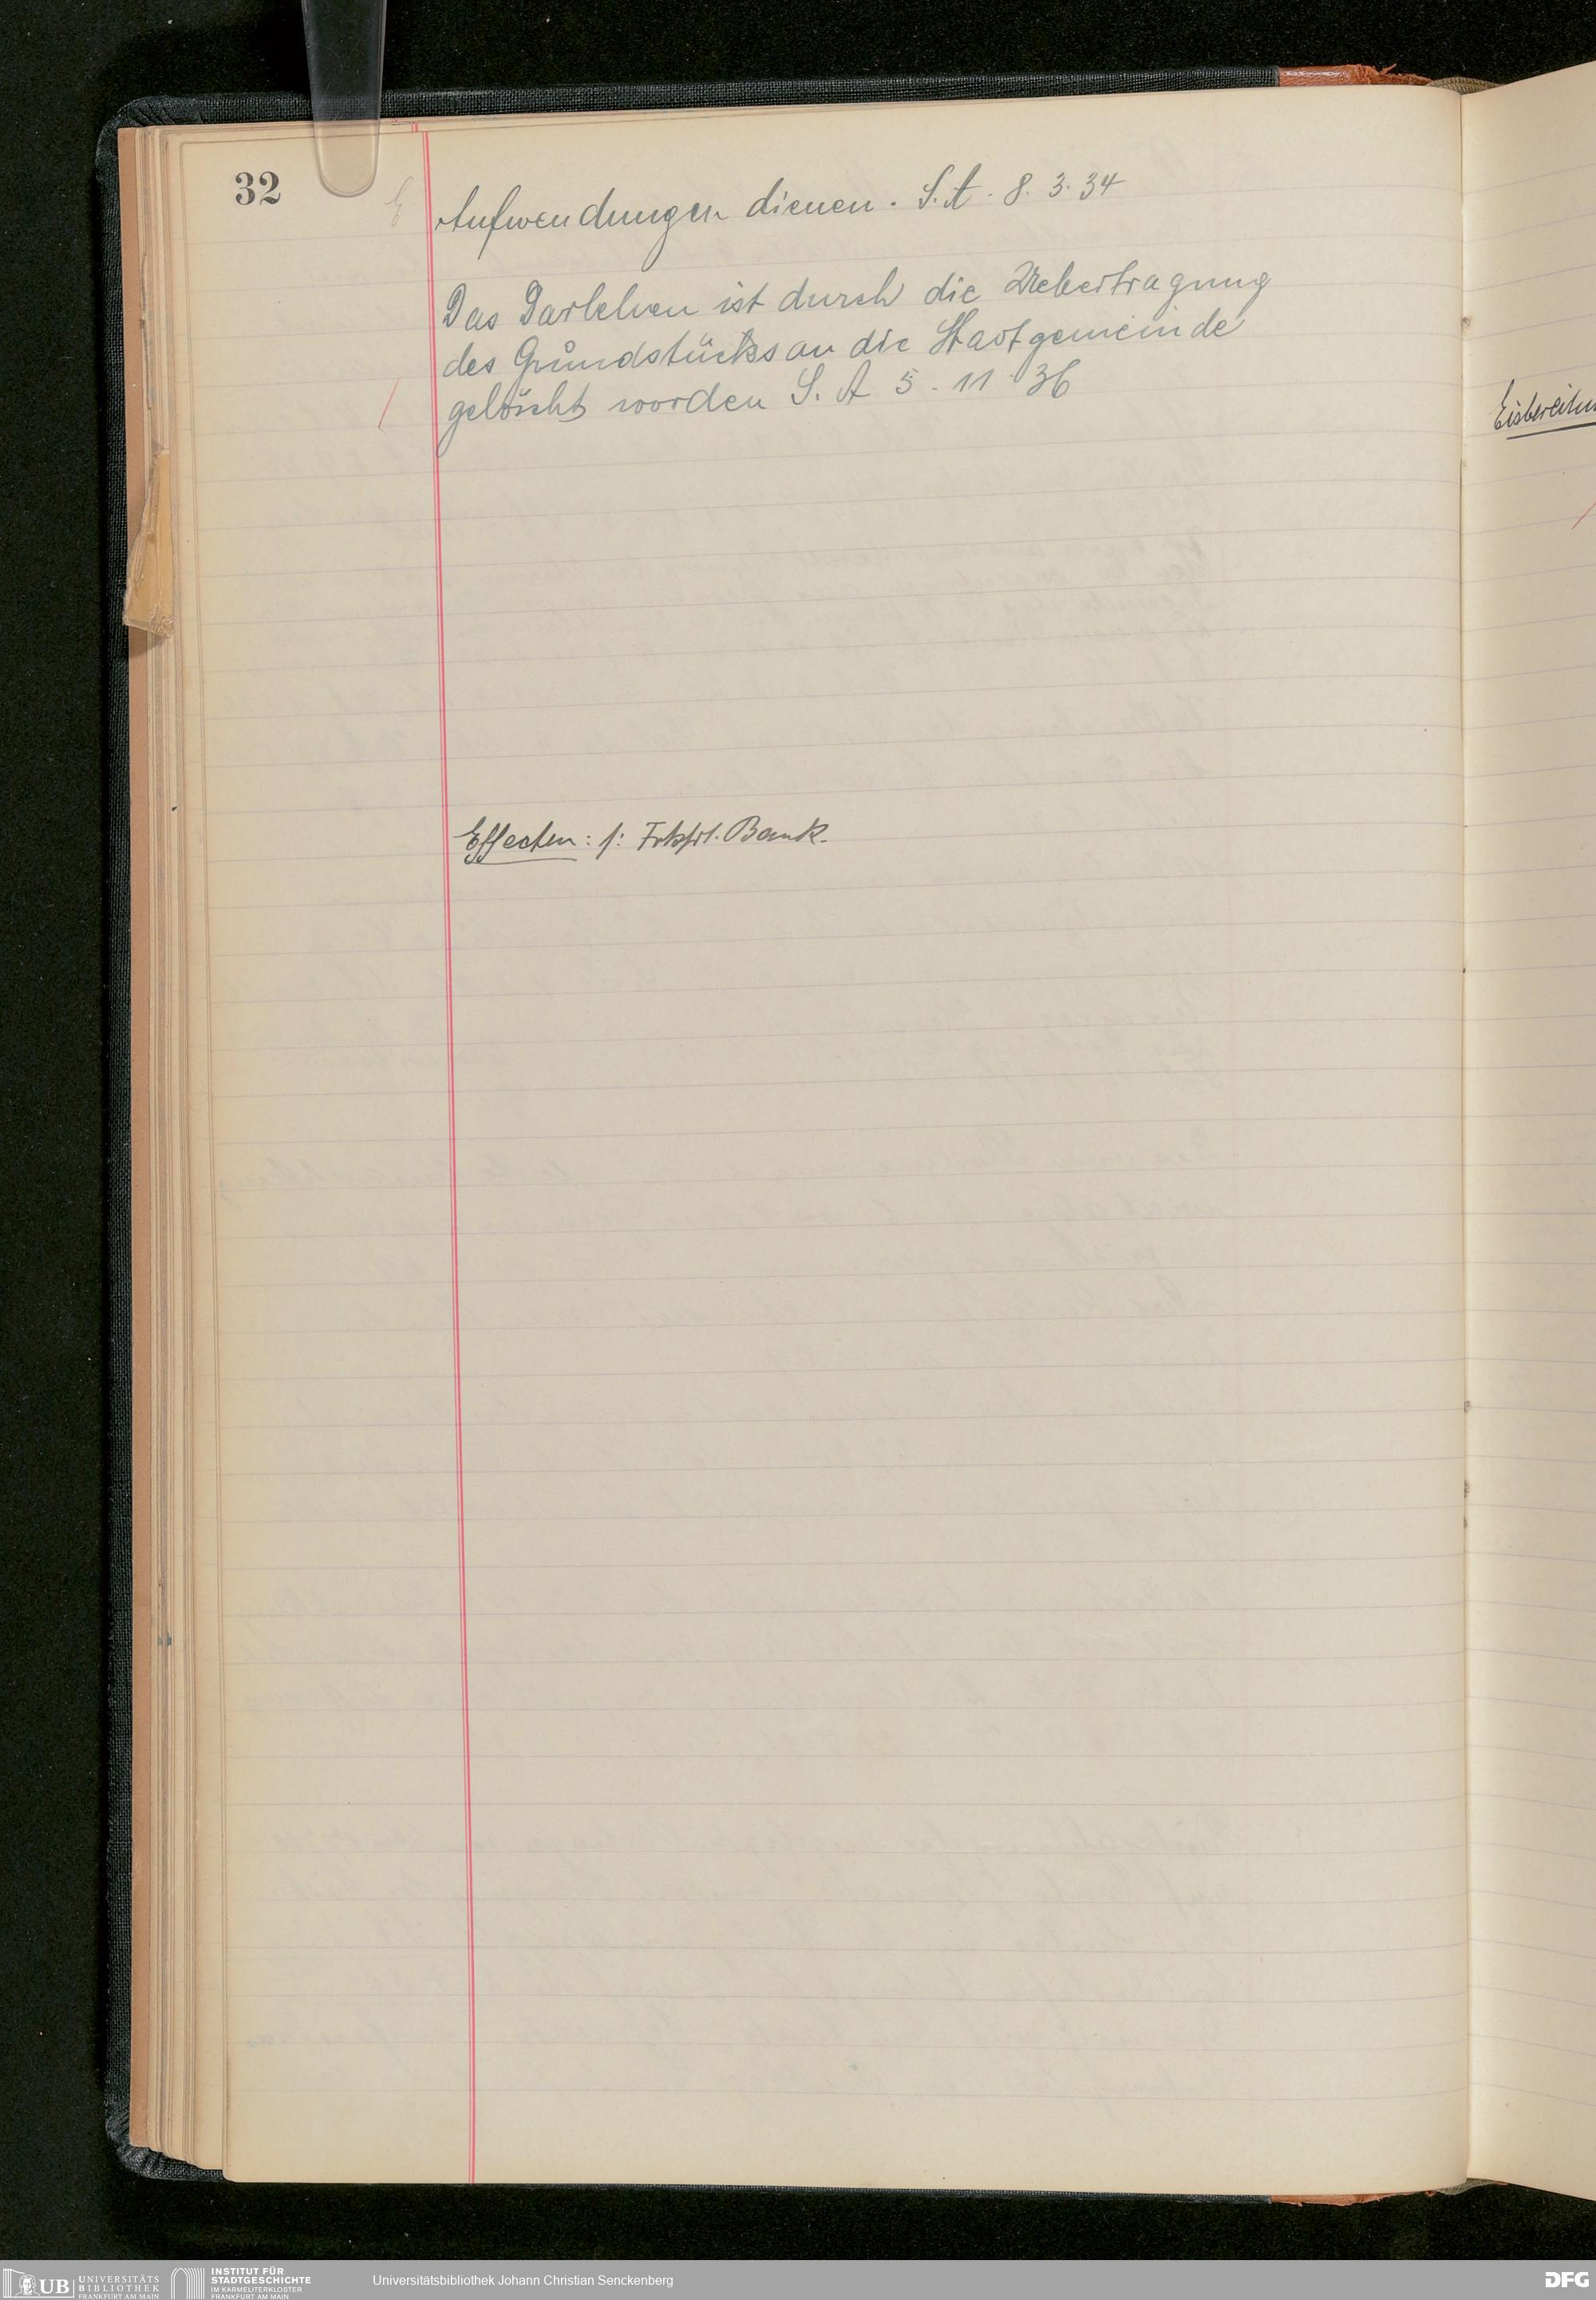 32
Aufwendungen dienen. S. A. 8. 3. 34
Das Darlehen ist durch die Uebertragung
des Grundstücks an die Stadtgemeinde
gelöscht worden S. A 5. 11. 36
Effecten: f: Frkfrt. Bank.
UB UNIVERSITÄTS
BIBLIOTHEK
FRANKFURT AM MAIN
INSTITUT FÜR
STADTGESCHICHTE
IM KARMELITERKLOSTER
FRANKFURT AM MAIN
Universitätsbibliothek Johann Christian Senckenberg
DFG